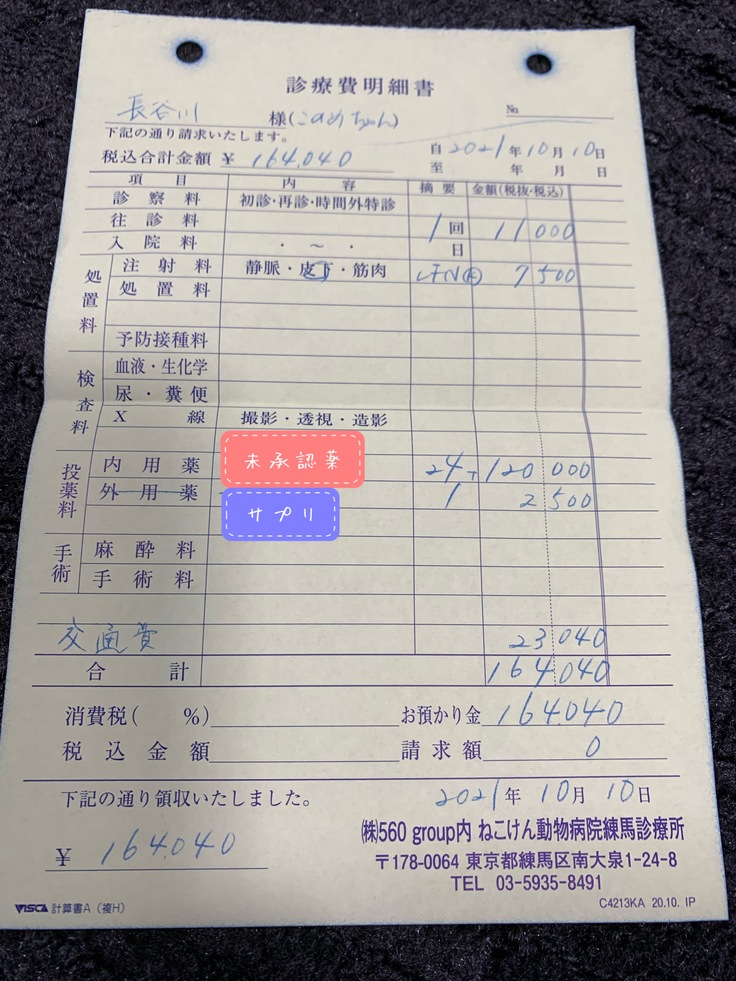 診療費明細書
長谷川 様(このめちゃん) №
下記の通り請求いたします。
税込合計金額 ¥ 164,040
自 2021年10月10日
至 年 月 日
項 目 内 容 摘 要 金額(税抜・税込)
診察料 初診・再診・時間外特診
往診料 1回 11000
入院料 ・ ~ ・ 日
処置料
注射料 静脈・皮下・筋肉 7500
処置料
予防接種料
検査料
血液・生化学
尿・糞便
X線 撮影・透視・造影
投薬料
内用薬 未承認薬 24 120000
外用薬 サプリ 1 2500
手術
麻酔料
手術料
交通費 23040
合計 164040
消費税( %) お預かり金 164040
税込金額 請求額 0
下記の通り領収いたしました。 2021年10月10日
¥ 164,040
㈱560 group内 ねこけん動物病院練馬診療所
〒178-0064 東京都練馬区南大泉1-24-8
TEL 03-5935-8491
VISCA 計算書A(複H) C4213KA 20.10. IP